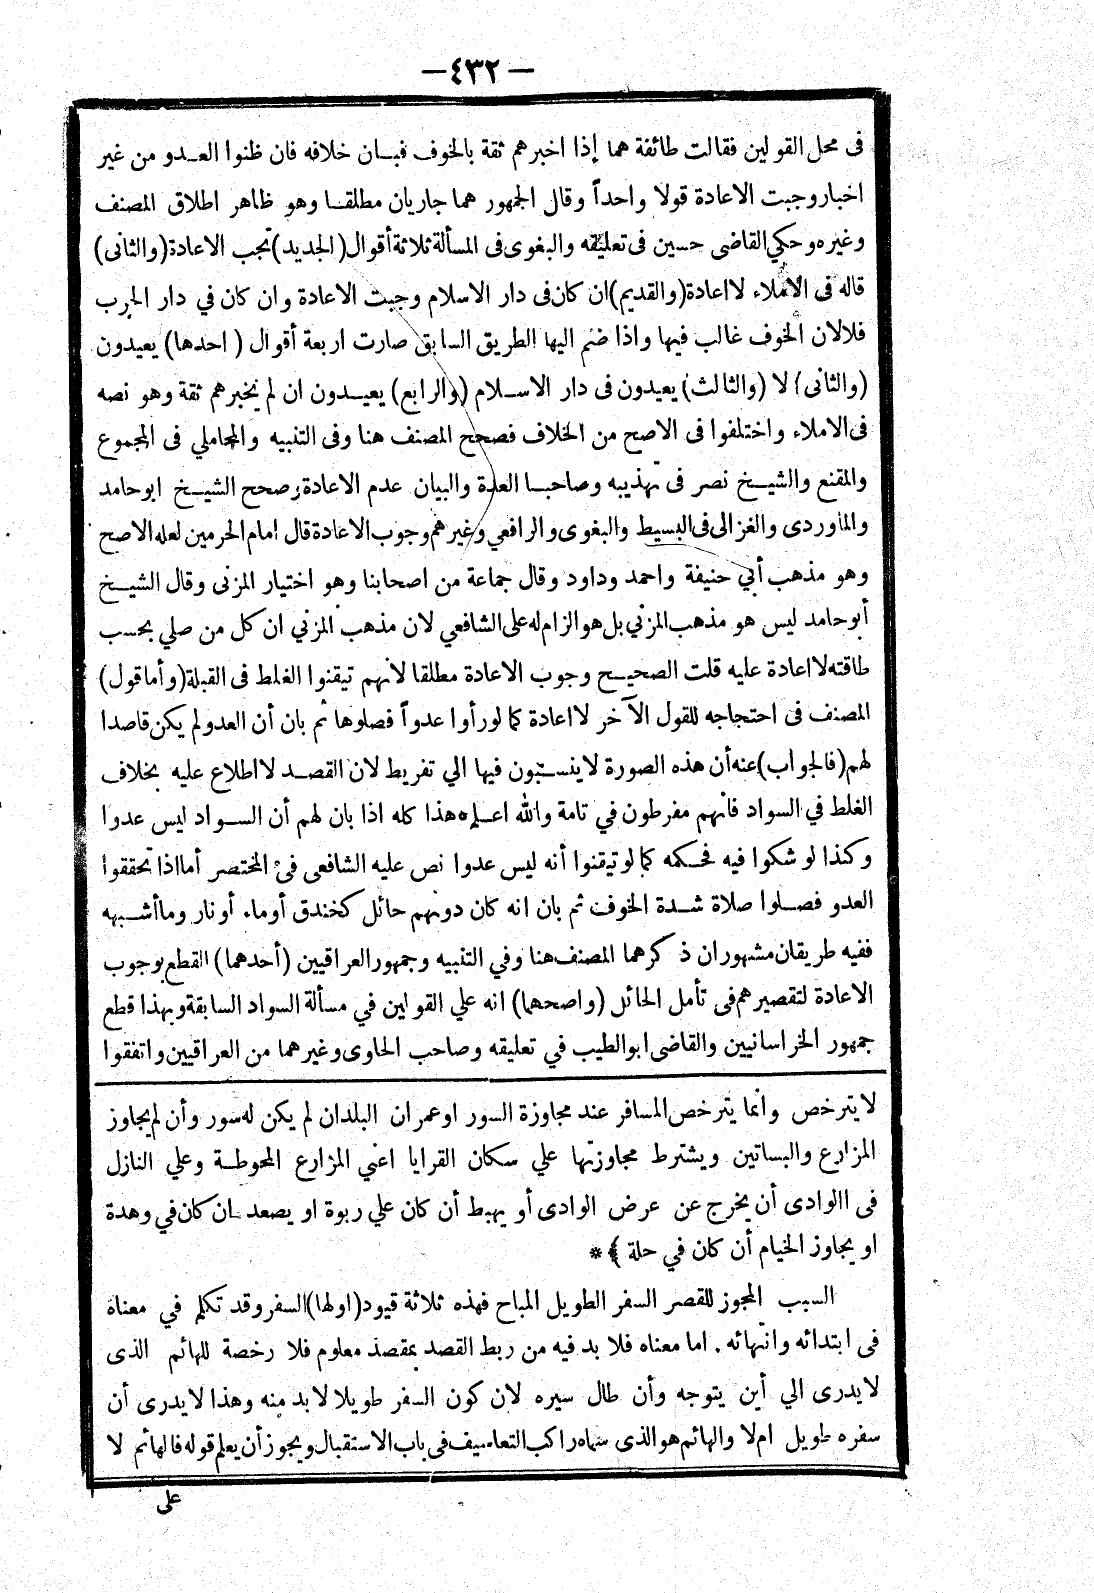 — ٤٣٢ —
فى محل القولين فقالت طائفة هما إذا اخبرهم ثقة بالخوف فبان خلافه فان ظنوا العدو من غير
اخبار وجبت الاعادة قولا واحداً وقال الجمهور هما جاريان مطلقا وهو ظاهر اطلاق المصنف
وغيره وحكي القاضى حسين فى تعليقه والبغوى فى المسألة ثلاثة أقوال (الجديد) تجب الاعادة (والثانى)
قاله فى الاملاء لا اعادة (والقديم) ان كان فى دار الاسلام وجبت الاعادة وان كان في دار الحرب
فلا لان الخوف غالب فيها واذا ضم اليها الطريق السابق صارت اربعة أقوال ( احدها) يعيدون
(والثانى) لا (والثالث) يعيدون فى دار الاسلام (والرابع) يعيدون ان لم يخبرهم ثقة وهو نصه
فى الاملاء واختلفوا فى الاصح من الخلاف فصحح المصنف هنا وفى التنبيه والمحاملي فى المجموع
والمقنع والشيخ نصر فى تهذيبه وصاحبا العدة والبيان عدم الاعادة وصحح الشيخ ابو حامد
والماوردى والغزالى فى البسيط والبغوى والرافعي وغيرهم وجوب الاعادة قال امام الحرمين لعله الاصح
وهو مذهب أبي حنيفة واحمد وداود وقال جماعة من اصحابنا وهو اختيار المزنى وقال الشيخ
أبو حامد ليس هو مذهب المزني بل هو الزام له على الشافعي لان مذهب المزني ان كل من صلي بحسب
طاقته لا اعادة عليه قلت الصحيح وجوب الاعادة مطلقا لانهم تيقنوا الغلط فى القبلة (وأما قول)
المصنف فى احتجاجه للقول الآخر لا اعادة كما لو رأوا عدواً فصلوها ثم بان أن العدو لم يكن قاصدا
لهم (فالجواب) عنه أن هذه الصورة لا ينسبون فيها الي تفريط لان القصد لا اطلاع عليه بخلاف
الغلط في السواد فانهم مفرطون في تامة والله اعلم * هذا كله اذا بان لهم أن السواد ليس عدوا
وكذا لو شكوا فيه فحكمه كما لو تيقنوا أنه ليس عدوا نص عليه الشافعى في المختصر أما اذا تحققوا
العدو فصلوا صلاة شدة الخوف ثم بان انه كان دونهم حائل كخندق أوماء أو نار وما أشبهه
ففيه طريقان مشهوران ذ كرهما المصنف هنا وفي التنبيه وجمهور العراقيين (أحدهما) القطع بوجوب
الاعادة لتقصيرهم فى تأمل الحائل (واصحهما) انه علي القولين في مسألة السواد السابقة وبهذا قطع
جمهور الخراسانيين والقاضى ابو الطيب في تعليقه وصاحب الحاوى وغيرهما من العراقيين واتفقوا
لا يترخص وانما يترخص المسافر عند مجاوزة السور او عمران البلدان لم يكن له سور وأن لم يجاوز
المزارع والبساتين ويشترط مجاوزتها علي سكان القرايا اعنى المزارع المحوطة وعلي النازل
فى االوادى أن يخرج عن عرض الوادى أو يهبط أن كان علي ربوة او يصعد ان كان في وهدة
او يجاوز الخيام أن كان في حلة ﴾ *
السبب المجوز للقصر السفر الطويل المباح فهذه ثلاثة قيود (اولها) السفر وقد تكلم في معناه
فى ابتدائه وانتهائه . اما معناه فلا بد فيه من ربط القصد بمقصد معلوم فلا رخصة للهائم الذى
لا يدرى الي أين يتوجه وأن طال سيره لان كون السفر طويلا لا بد منه وهذا لا يدرى أن
سفره طويل ام لا والهائم هو الذى سماه راكب التعاسيف فى باب الاستقبال ويجوز أن يعلم قوله فالهائم لا
على